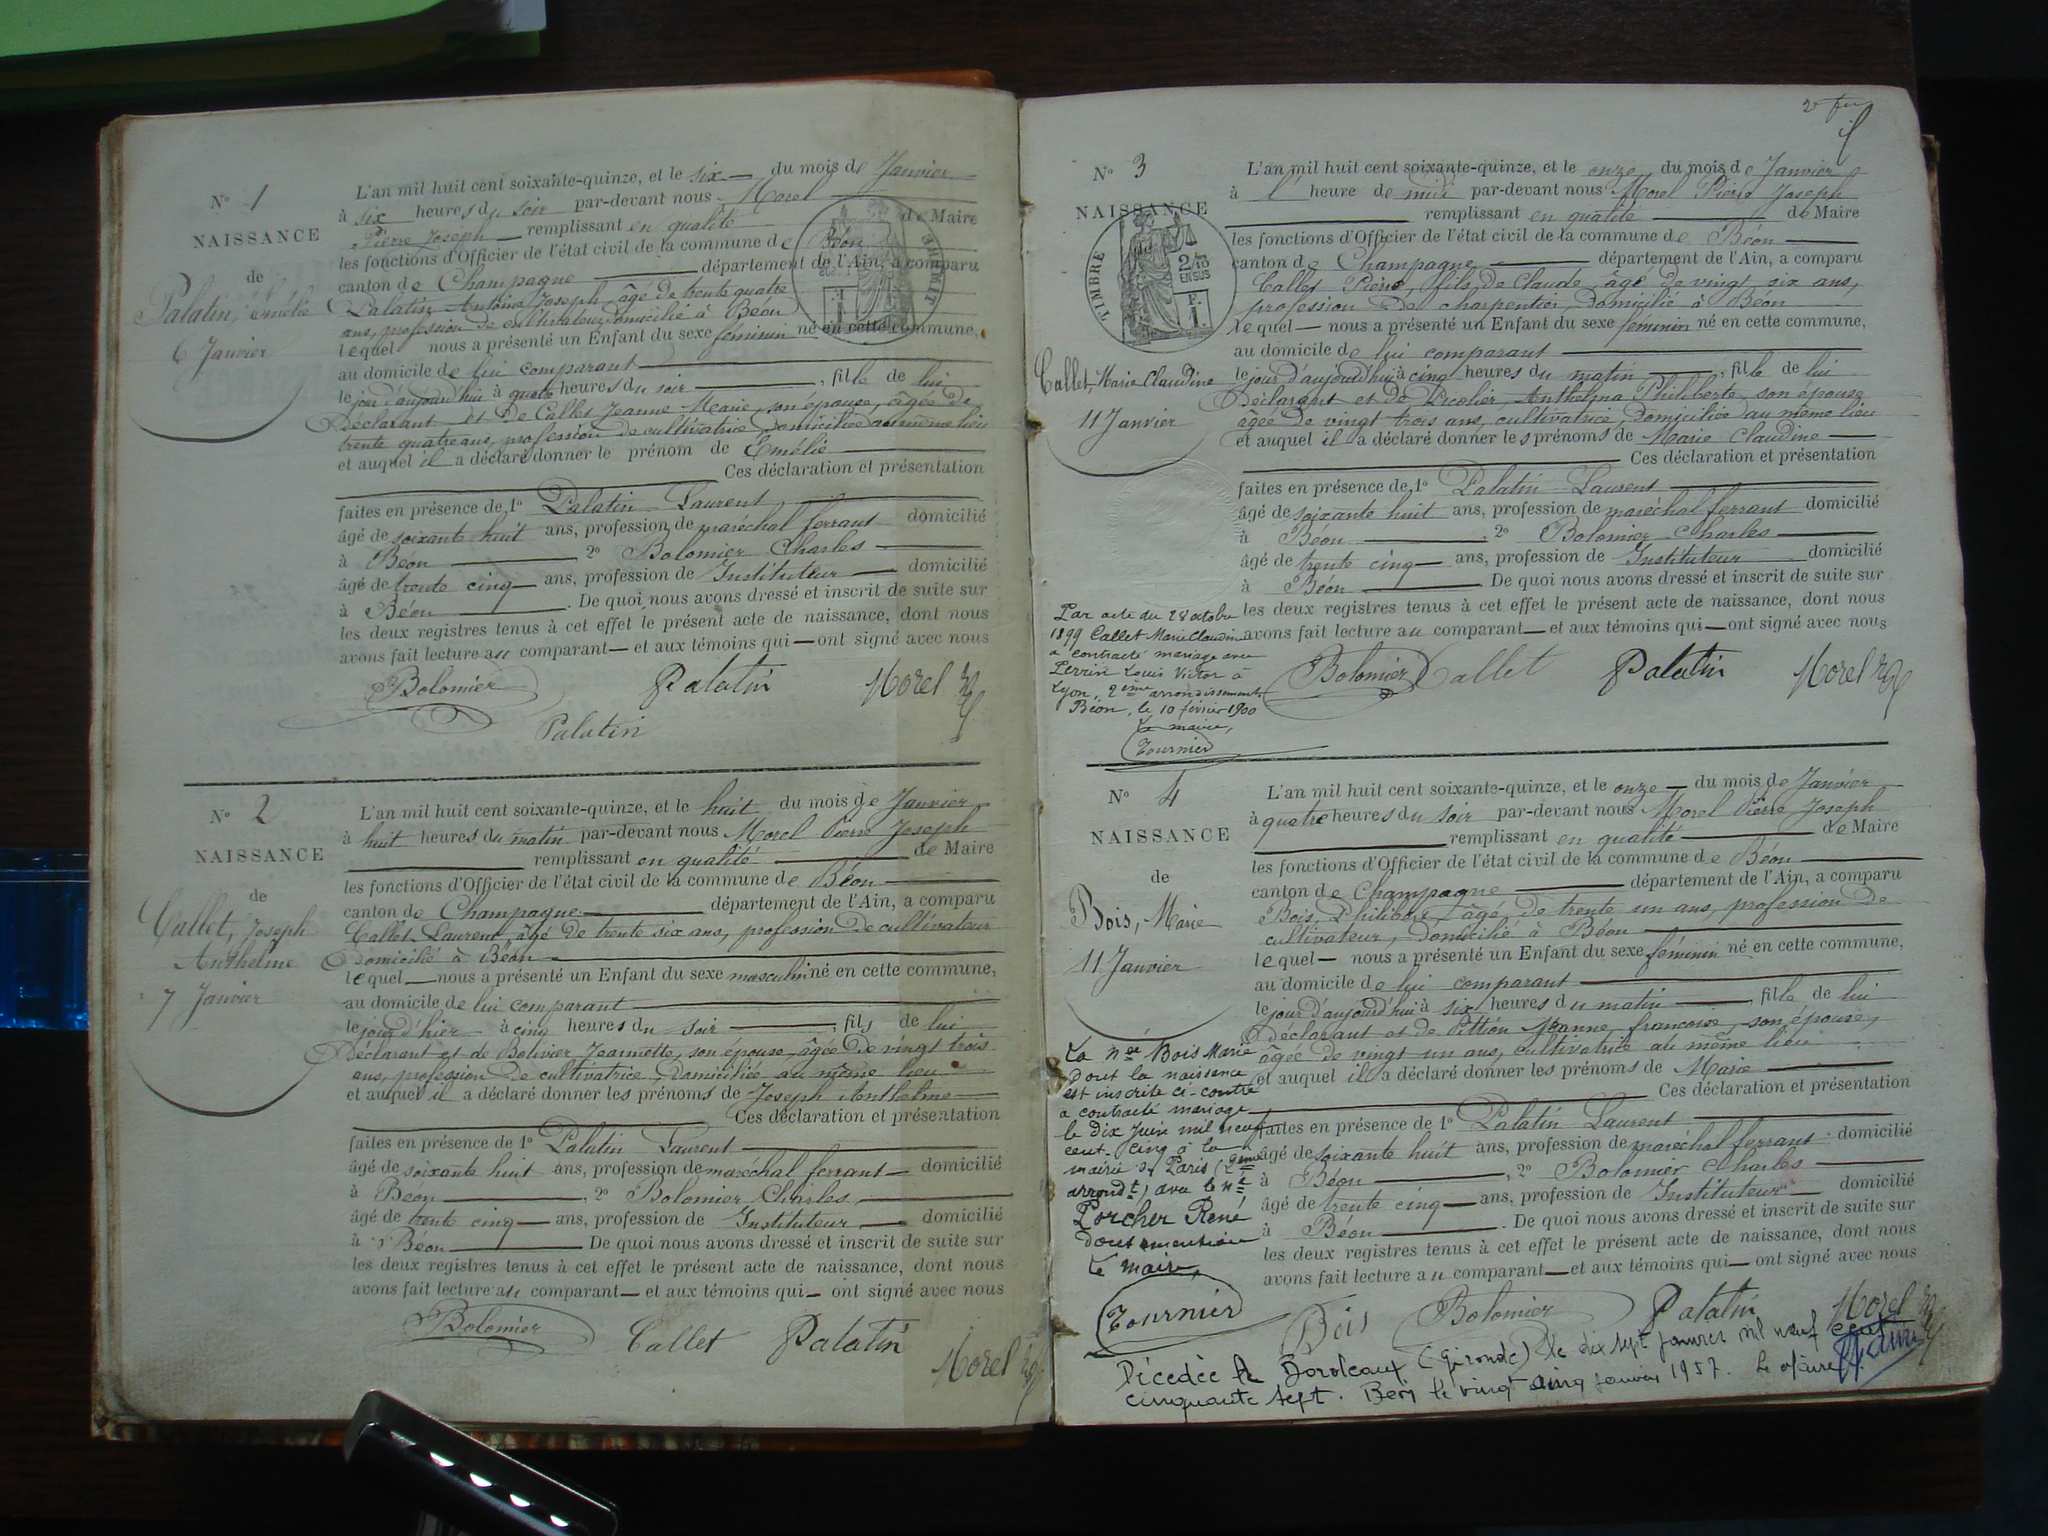 N° 1
NAISSANCE
de
Palatin, Emélie
6 Janvier
L'an mil huit cent soixante-quinze, et le six du mois de Janvier
à six heures du soir par-devant nous Morel
Pierre Joseph remplissant en qualité de Maire
les fonctions d'Officier de l'état civil de la commune de Béon
canton de Champagne département de l'Ain, a comparu
Palatin Antoine Joseph âgé de trente quatre
ans, profession de cultivateur domicilié à Béon
lequel nous a présenté un Enfant du sexe féminin né en cette commune,
au domicile de lui comparant
le jour d'aujourd'hui à quatre heures du soir, fille de lui
Déclarant et de Callet Jeanne Marie, son épouse, âgée de
trente quatre ans, profession de cultivatrice domiciliée au même lieu
et auquel il a déclaré donner le prénom de Emélie
Ces déclaration et présentation
faites en présence de 1° Palatin Laurent
âgé de soixante huit ans, profession de maréchal ferrant domicilié
à Béon 2° Bolomier Charles
âgé de trente cinq ans, profession de Instituteur domicilié
à Béon. De quoi nous avons dressé et inscrit de suite sur
les deux registres tenus à cet effet le présent acte de naissance, dont nous
avons fait lecture au comparant et aux témoins qui ont signé avec nous
Bolomier Palatin Morel
Palatin
N° 2
NAISSANCE
de
Callet, Joseph
Anthelme
7 Janvier
L'an mil huit cent soixante-quinze, et le huit du mois de Janvier
à huit heures du matin par-devant nous Morel Pierre Joseph
remplissant en qualité de Maire
les fonctions d'Officier de l'état civil de la commune de Béon
canton de Champagne département de l'Ain, a comparu
Callet Laurent, âgé de trente six ans, profession de cultivateur
domicilié à Béon
lequel nous a présenté un Enfant du sexe masculin né en cette commune,
au domicile de lui comparant
le jour d'hier à cinq heures du soir, fils de lui
Déclarant et de Bolivier Jeannette, son épouse, âgée de vingt trois
ans, profession de cultivatrice, domiciliée au même lieu
et auquel il a déclaré donner les prénoms de Joseph Anthelme
Ces déclaration et présentation
faites en présence de 1° Palatin Laurent
âgé de soixante huit ans, profession de maréchal ferrant domicilié
à Béon, 2° Bolomier Charles
âgé de trente cinq ans, profession de Instituteur domicilié
à Béon De quoi nous avons dressé et inscrit de suite sur
les deux registres tenus à cet effet le présent acte de naissance, dont nous
avons fait lecture au comparant et aux témoins qui ont signé avec nous
Bolomier Callet Palatin Morel
2e
N° 3
NAISSANCE
de
TIMBRE
2/10
EN SUS
F.
1
Callet, Marie Claudine
11 Janvier
L'an mil huit cent soixante-quinze, et le onze du mois de Janvier
à l'heure de midi par-devant nous Morel Pierre Joseph
remplissant en qualité de Maire
les fonctions d'Officier de l'état civil de la commune de Béon
canton de Champagne département de l'Ain, a comparu
Callet Pierre, fils de Claude âgé de vingt six ans,
profession de charpentier, domicilié à Béon
lequel nous a présenté un Enfant du sexe féminin né en cette commune,
au domicile de lui comparant
le jour d'aujourd'hui à cinq heures du matin, fille de lui
Déclarant et de Anthelma Philiberte, son épouse
âgée de vingt trois ans, cultivatrice, domiciliée au même lieu
et auquel il a déclaré donner les prénoms de Marie Claudine
Ces déclaration et présentation
faites en présence de 1° Palatin Laurent
âgé de soixante huit ans, profession de maréchal ferrant domicilié
à Béon, 2° Bolomier Charles
âgé de trente cinq ans, profession de Instituteur domicilié
à Béon. De quoi nous avons dressé et inscrit de suite sur
les deux registres tenus à cet effet le présent acte de naissance, dont nous
avons fait lecture au comparant et aux témoins qui ont signé avec nous
Par acte du 28 octobre
1899 Callet Marie Claudine
a contracté mariage avec
Perrin Louis Victor à
Lyon, 2ème arrondissement
Béon, le 10 février 1900
Le maire,
Tournier
Bolomier Callet Palatin Morel
N° 4
NAISSANCE
de
Bois, Marie
11 Janvier
L'an mil huit cent soixante-quinze, et le onze du mois de Janvier
à quatre heures du soir par-devant nous Morel Pierre Joseph
remplissant en qualité de Maire
les fonctions d'Officier de l'état civil de la commune de Béon
canton de Champagne département de l'Ain, a comparu
Bois, Philibert, âgé de trente un ans, profession de
cultivateur, domicilié à Béon
lequel nous a présenté un Enfant du sexe féminin né en cette commune,
au domicile de lui comparant
le jour d'aujourd'hui à six heures du matin, fille de lui
Déclarant et de Pittion Jeanne, françoise, son épouse,
âgée de vingt un ans, cultivatrice au même lieu
et auquel il a déclaré donner les prénoms de Marie
Ces déclaration et présentation
faites en présence de 1° Palatin Laurent
âgé de soixante huit ans, profession de maréchal ferrant domicilié
à Béon, 2° Bolomier Charles
âgé de trente cinq ans, profession de Instituteur domicilié
à Béon. De quoi nous avons dressé et inscrit de suite sur
les deux registres tenus à cet effet le présent acte de naissance, dont nous
avons fait lecture au comparant et aux témoins qui ont signé avec nous
La née Bois Marie
dont la naissance
est inscrite ci-contre
a contracté mariage
le dix Juin mil neuf
cent cinq à la
mairie de Paris (2ème
arrondt) avec le né
Porcher René
dont mention
Le maire,
Tournier
Bois Bolomier Palatin Morel
Décédée à Bordeaux (Gironde) le dix sept janvier mil neuf cent
cinquante sept. Béon le vingt cinq janvier 1957. Le Maire